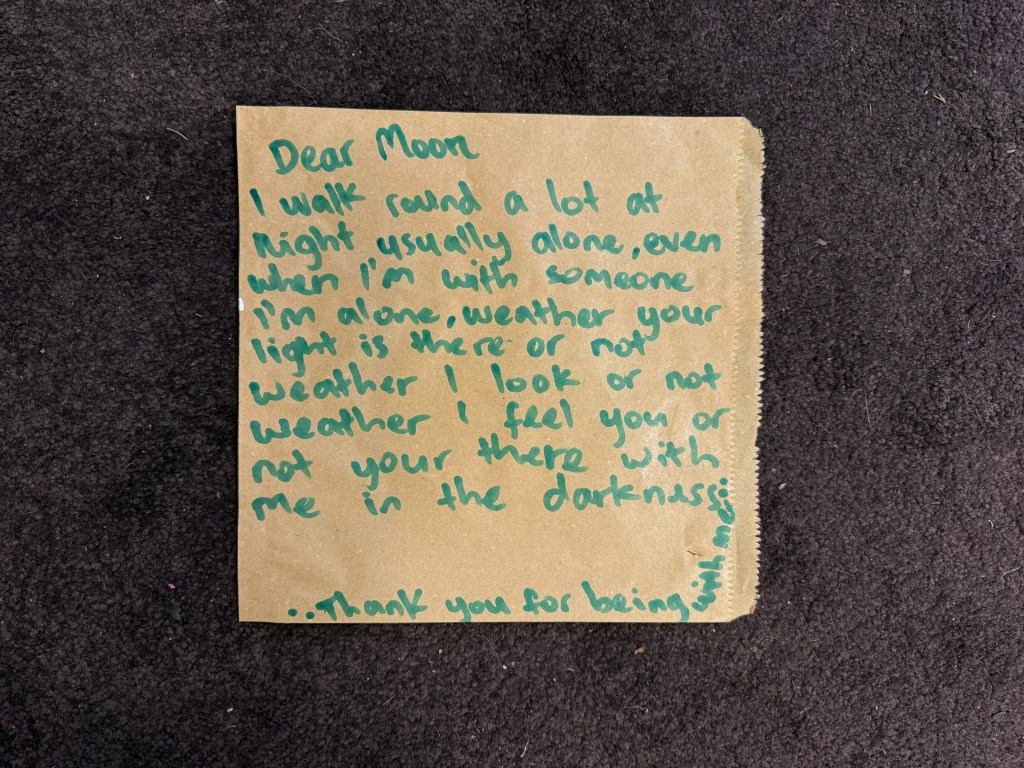 Dear Moon
I walk round a lot at
Night usually alone, even
when I'm with someone
i'm alone, weather your
light is there or not
weather I look or not
weather I feel you or
not your there with
me in the darkness..
..Thank you for being with me..